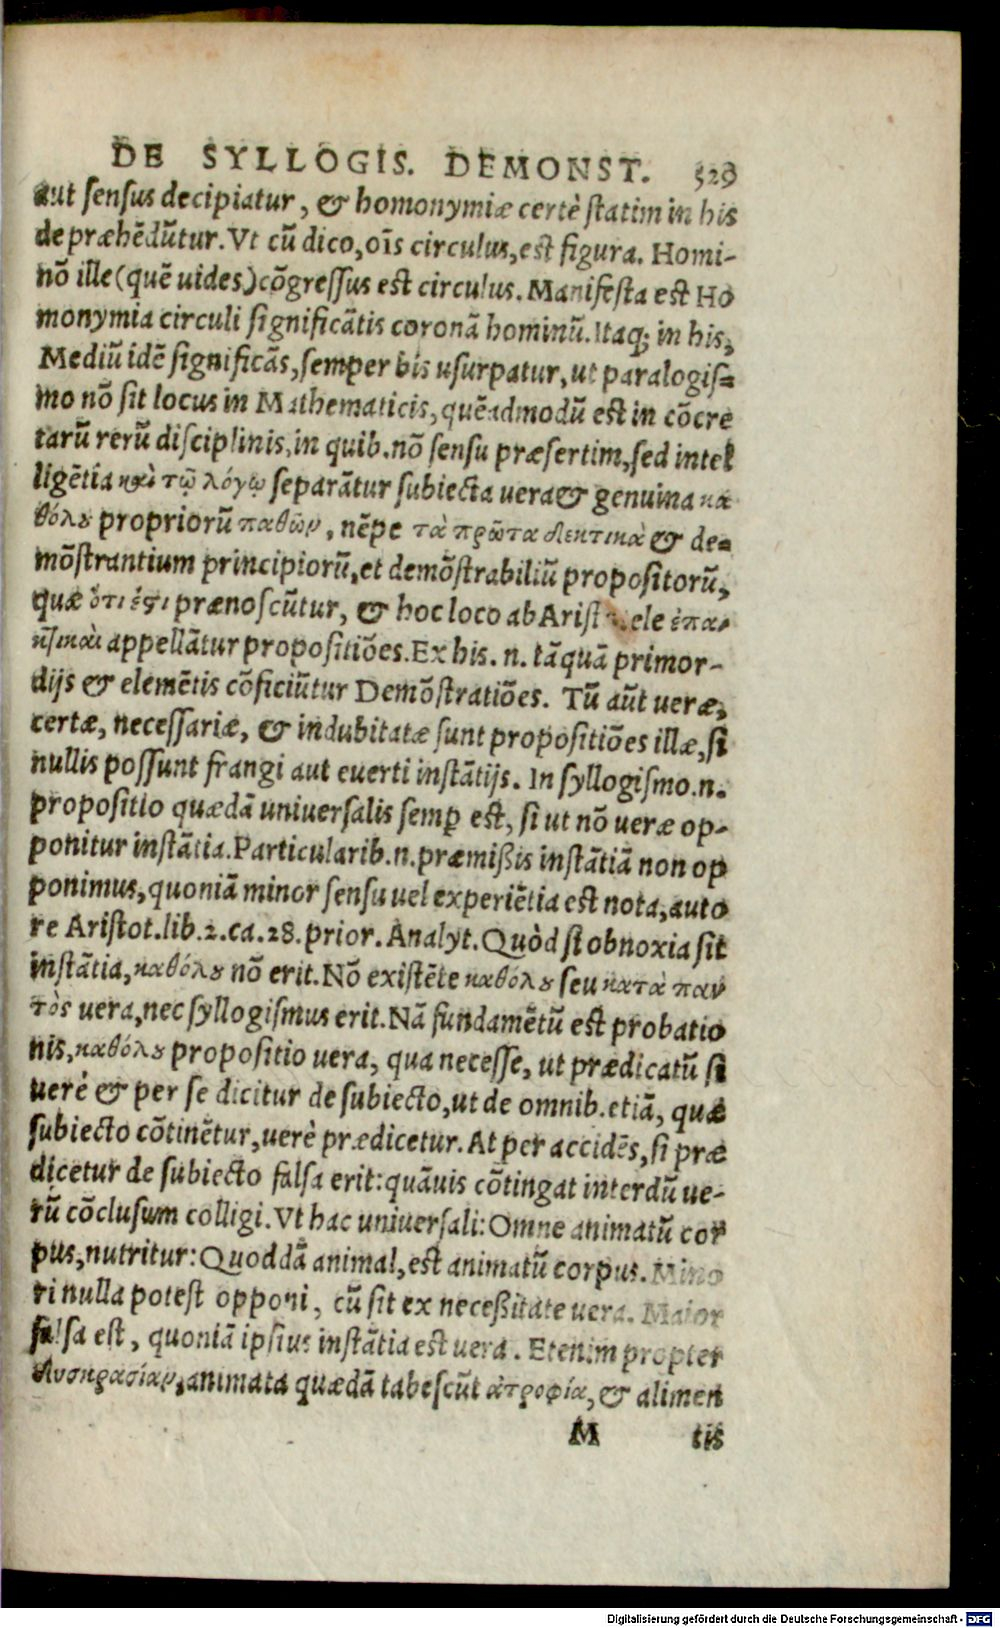 DE SYLLOGIS. DEMONST. 529
aut sensus decipiatur, & homonymiæ certè statim in his
depræhēdūtur. Vt cū dico, oīs circulus, est figura. Homi-
nō ille (quē uides) cōgressus est circulus. Manifesta est Ho
monymia circuli significātis coronā hominū. Itaq; in his,
Mediū idē significās, semper bis usurpatur, ut paralogis=
mo nō sit locus in Mathematicis, quēadmodū est in cōcre
tarū rerū disciplinis, in quib. nō sensu præsertim, sed intel
ligētia καὶ τῷ λόγῳ separātur subiecta uera & genuina κα
θόλου propriorū παθῶν, nēpe τὰ πρῶτα δεκτικὰ & de=
mōstrantium principiorū, et demōstrabiliū propositorū,
quæ ὅτι ἐςι prænoscūtur, & hoc loco ab Arist ele ἐπακ
appellātur propositiōes. Ex his. n. tāquā primor-
dijs & elemētis cōficiūtur Demōstratiōes. Tū aūt ueræ,
certæ, necessariæ, & indubitatæ sunt propositiōes illæ, si
nullis possunt frangi aut euerti instātijs. In syllogismo. n.
propositio quædā uniuersalis semp est, si ut nō ueræ op-
ponitur instātia. Particularib. n. præmißis instātiā non op
ponimus, quoniā minor sensu uel experiētia est nota, auto
re Aristot. lib. 2. ca. 28. prior. Analyt. Quòd si obnoxia sit
instātia, καθόλου nō erit. Nō existēte καθόλου seu κατὰ παν
τὸς uera, nec syllogismus erit. Nā fundamētū est probatio
nis, καθόλου propositio uera, qua necesse, ut prædicatū si
uerè & per se dicitur de subiecto, ut de omnib. etiā, quæ
subiecto cōtinētur, uerè prædicetur. At per accidēs, si præ
dicetur de subiecto falsa erit: quāuis cōtingat interdū ue-
rū cōclusum colligi. Vt hac uniuersali: Omne animatū cor
pus, nutritur: Quoddā animal, est animatū corpus. Mino
ri nulla potest opponi, cū sit ex neceßitate uera. Maior
falsa est, quoniā ipsius instātia est uera. Etenim propter
δυσκρασίαν, animata quædā tabescūt ἀτροφία, & alimen
M tis
Digitalisierung gefördert durch die Deutsche Forschungsgemeinschaft - DFG